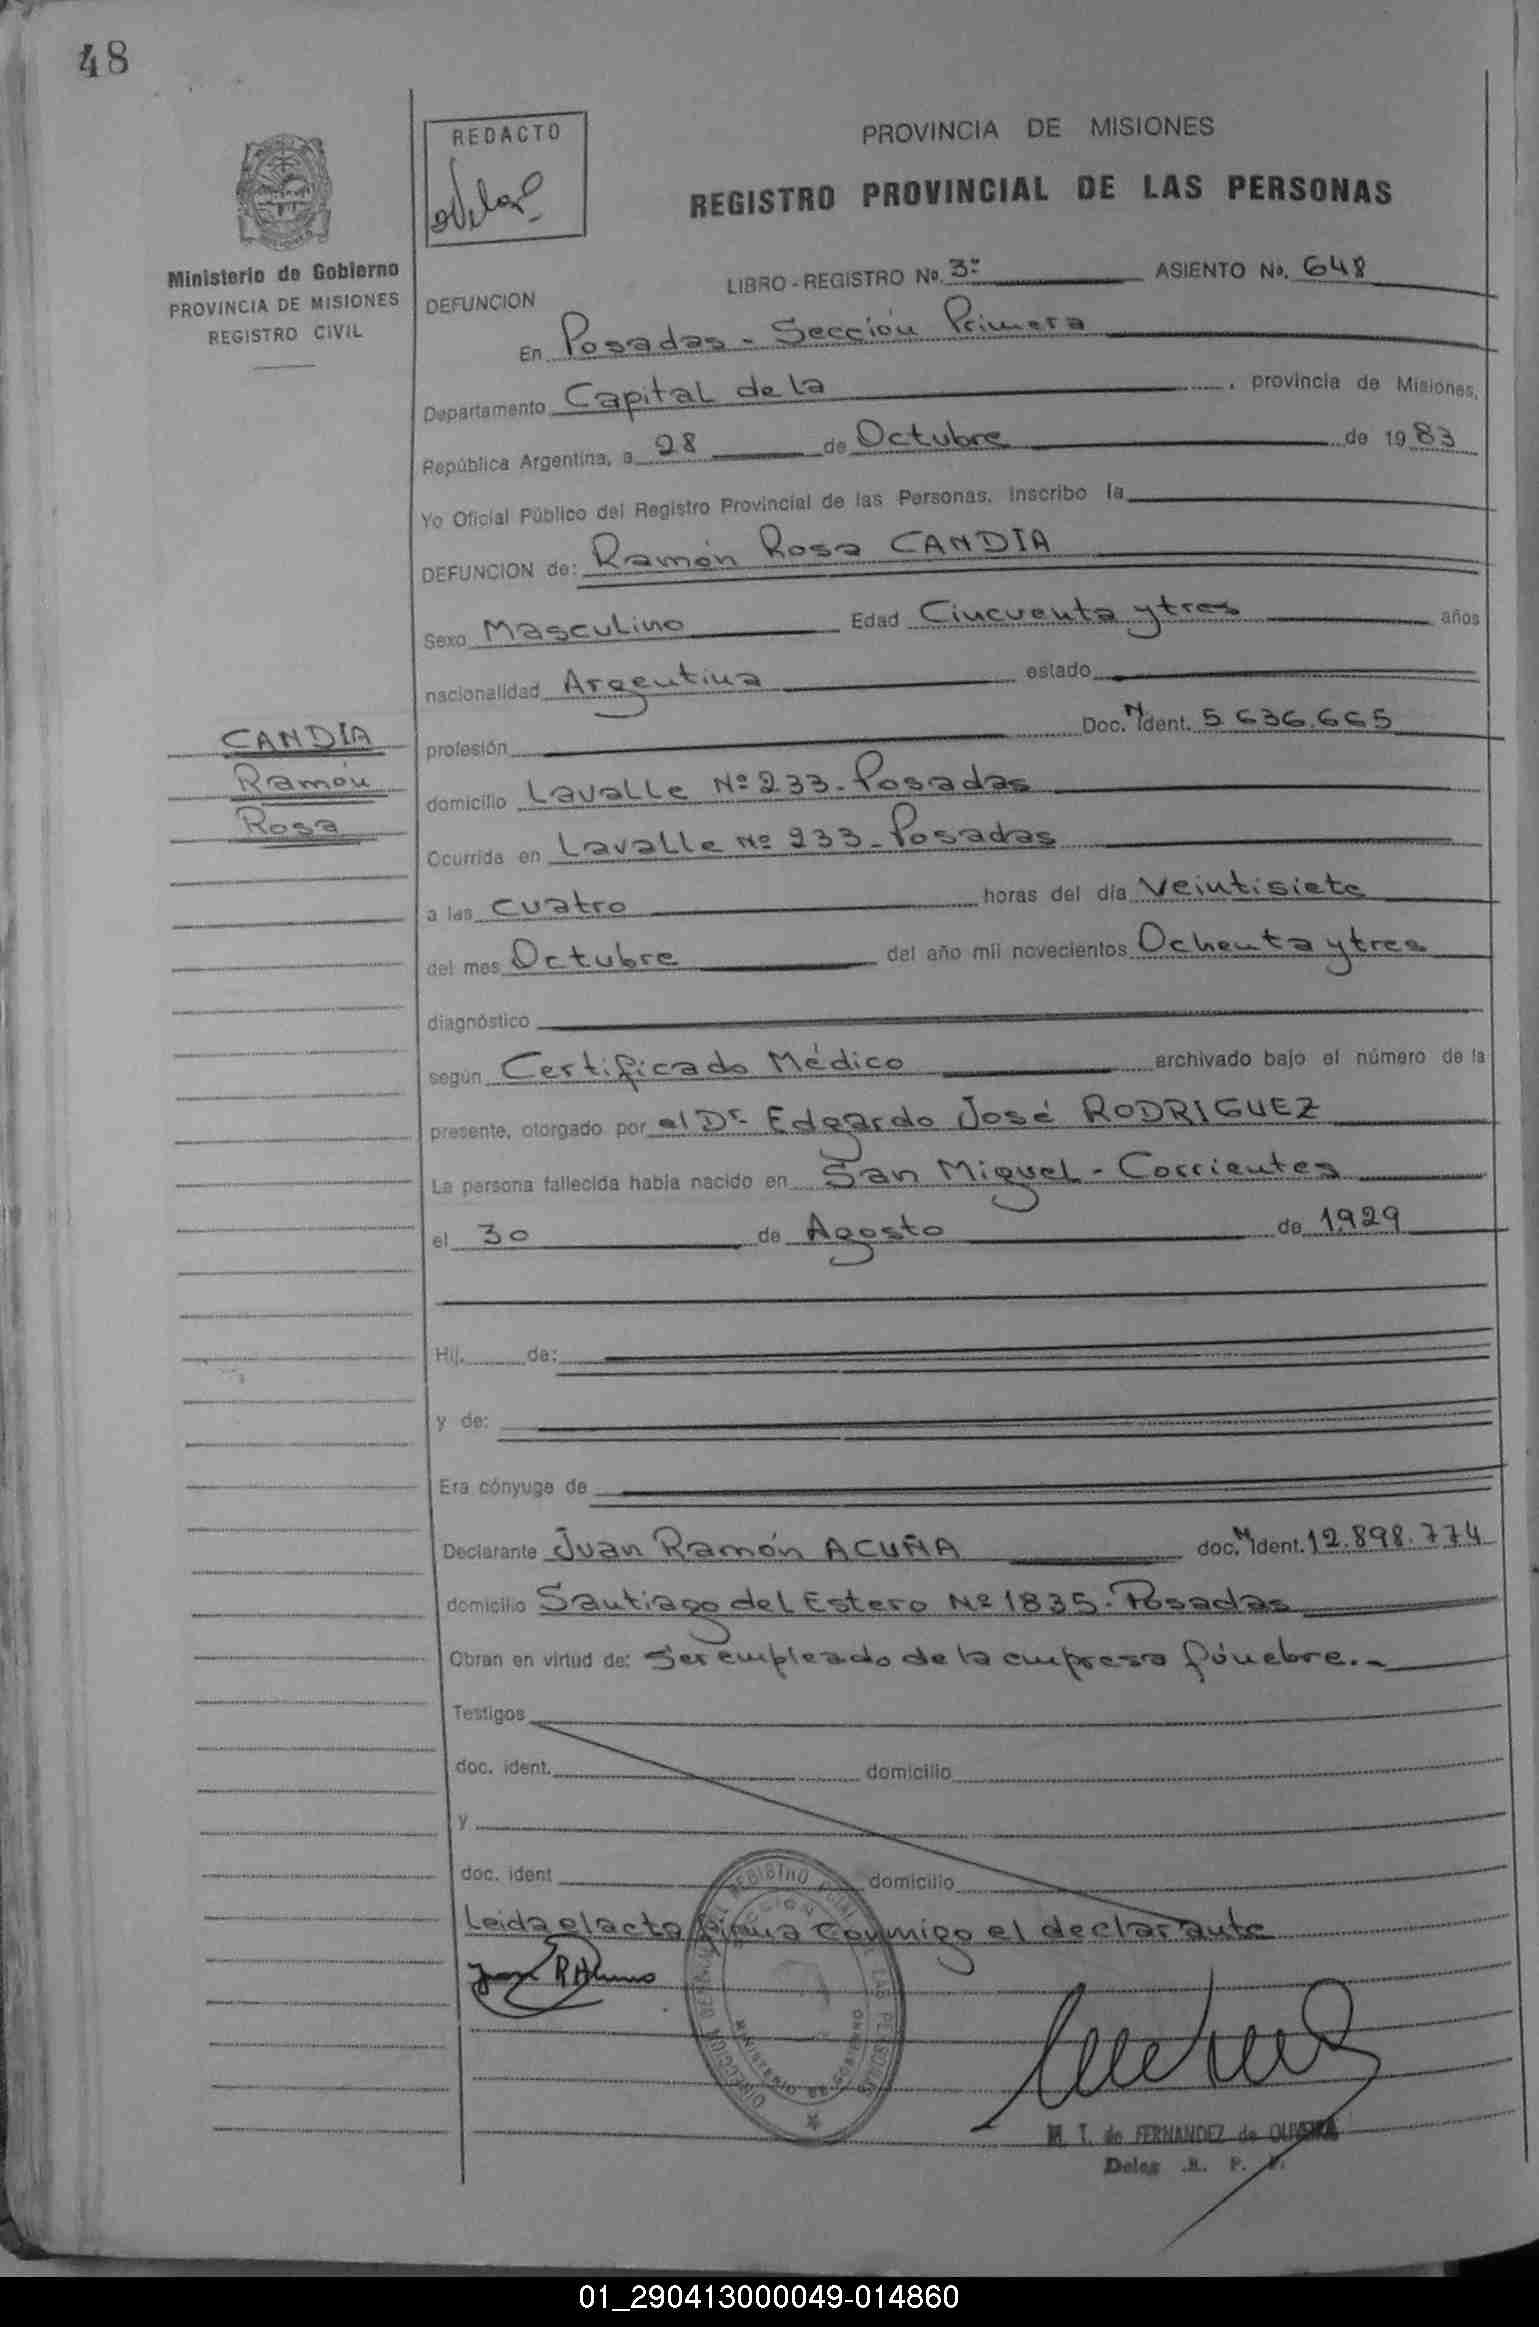 48
REDACTO
PROVINCIA DE MISIONES
REGISTRO PROVINCIAL DE LAS PERSONAS
Ministerio de Gobierno
PROVINCIA DE MISIONES
REGISTRO CIVIL
LIBRO - REGISTRO No. 3º ASIENTO No. 648
DEFUNCION
En Posadas - Sección Primera
Departamento Capital de la , provincia de Misiones,
República Argentina, a 28 de Octubre de 1983
Yo Oficial Público del Registro Provincial de las Personas, inscribo la
DEFUNCION de: Ramón Rosa CANDIA
Sexo Masculino Edad Cincuenta y tres años
nacionalidad Argentina estado
CANDIA
Ramón
Rosa
profesión Doc. N ident. 5.636.665
domicilio Lavalle Nº 233 - Posadas
Ocurrida en Lavalle Nº 233 - Posadas
a las cuatro horas del día Veintisiete
del mes Octubre del año mil novecientos Ochenta y tres
diagnóstico
según Certificado Médico archivado bajo el número de la
presente, otorgado por el Dr. Edgardo José RODRIGUEZ
La persona fallecida había nacido en San Miguel - Corrientes
el 30 de Agosto de 1929
Hij. de:
y de:
Era cónyuge de
Declarante Juan Ramón ACUÑA doc. N ident. 12.898.774
domicilio Santiago del Estero Nº 1835 - Posadas
Obran en virtud de: Ser empleado de la empresa fúnebre.-
Testigos
doc. ident. domicilio
y
doc. ident domicilio
Leida el acta firma conmigo el declarante
DIRECCION GENERAL DEL REGISTRO LAS PERSONAS
MINISTERIO DE GOBIERNO
M. T. de FERNANDEZ de OLIVEIRA
Deleg. R. P. P.
01_290413000049-014860